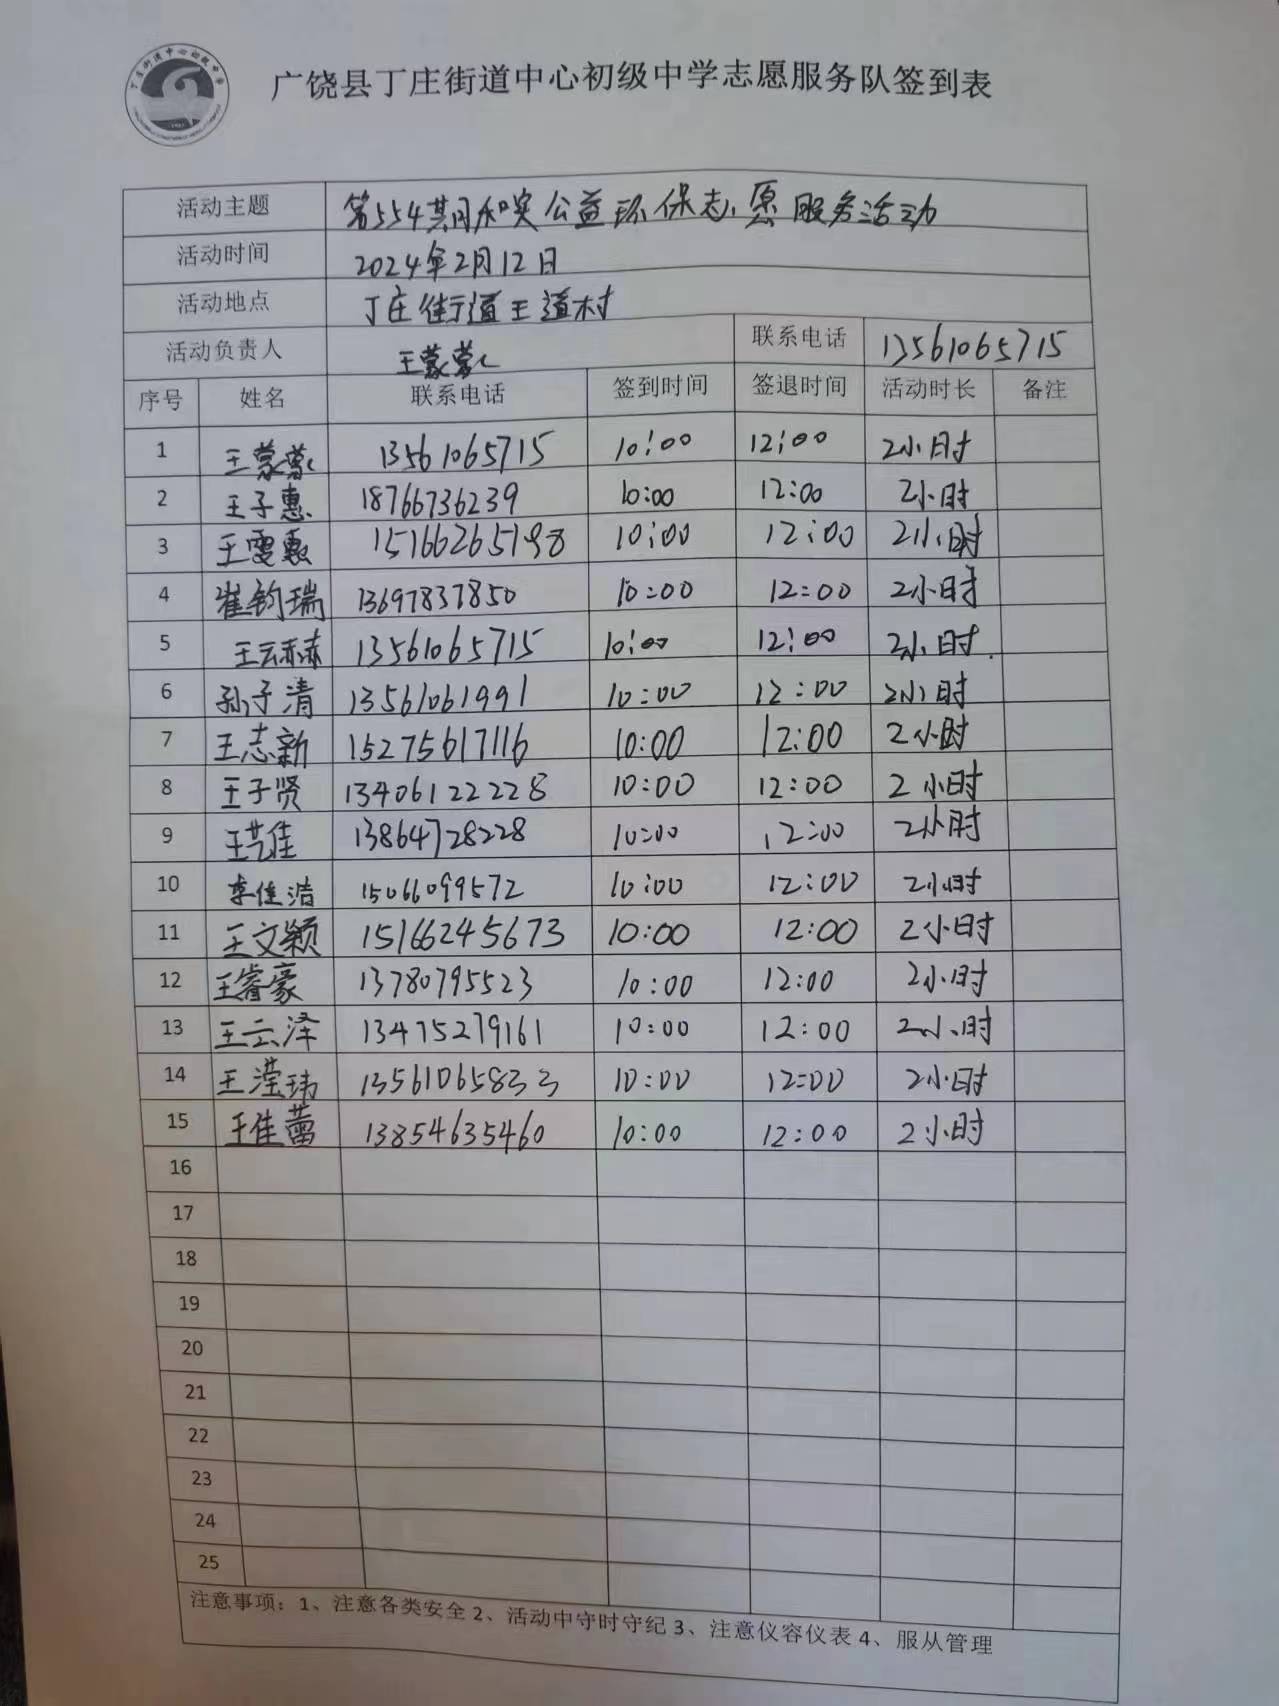 广饶县丁庄街道中心初级中学志愿服务队签到表
活动主题 第554期和奕公益环保志愿服务活动
活动时间 2024年2月12日
活动地点 丁庄街道王道村
活动负责人 王蒙蒙 联系电话 13561065715
序号 姓名 联系电话 签到时间 签退时间 活动时长 备注
1 王蒙蒙 13561065715 10:00 12:00 2小时
2 王子惠 18766736239 10:00 12:00 2小时
3 王雯惠 15166265198 10:00 12:00 2小时
4 崔钧瑞 13697837850 10:00 12:00 2小时
5 王云赫 13561065715 10:00 12:00 2小时.
6 孙子清 13561061991 10:00 12:00 2小时
7 王志新 15275617116 10:00 12:00 2小时
8 王子贤 13406122228 10:00 12:00 2小时
9 王艺佳 13864728228 10:00 12:00 2小时
10 李佳浩 15066099572 10:00 12:00 2小时
11 王文颖 15166245673 10:00 12:00 2小时
12 王睿豪 13780795523 10:00 12:00 2小时
13 王云泽 13475279161 10:00 12:00 2小时
14 王滢玮 13561065833 10:00 12:00 2小时
15 王佳蕾 13854635460 10:00 12:00 2小时
16
17
18
19
20
21
22
23
24
25
注意事项：1、注意各类安全 2、活动中守时守纪 3、注意仪容仪表 4、服从管理